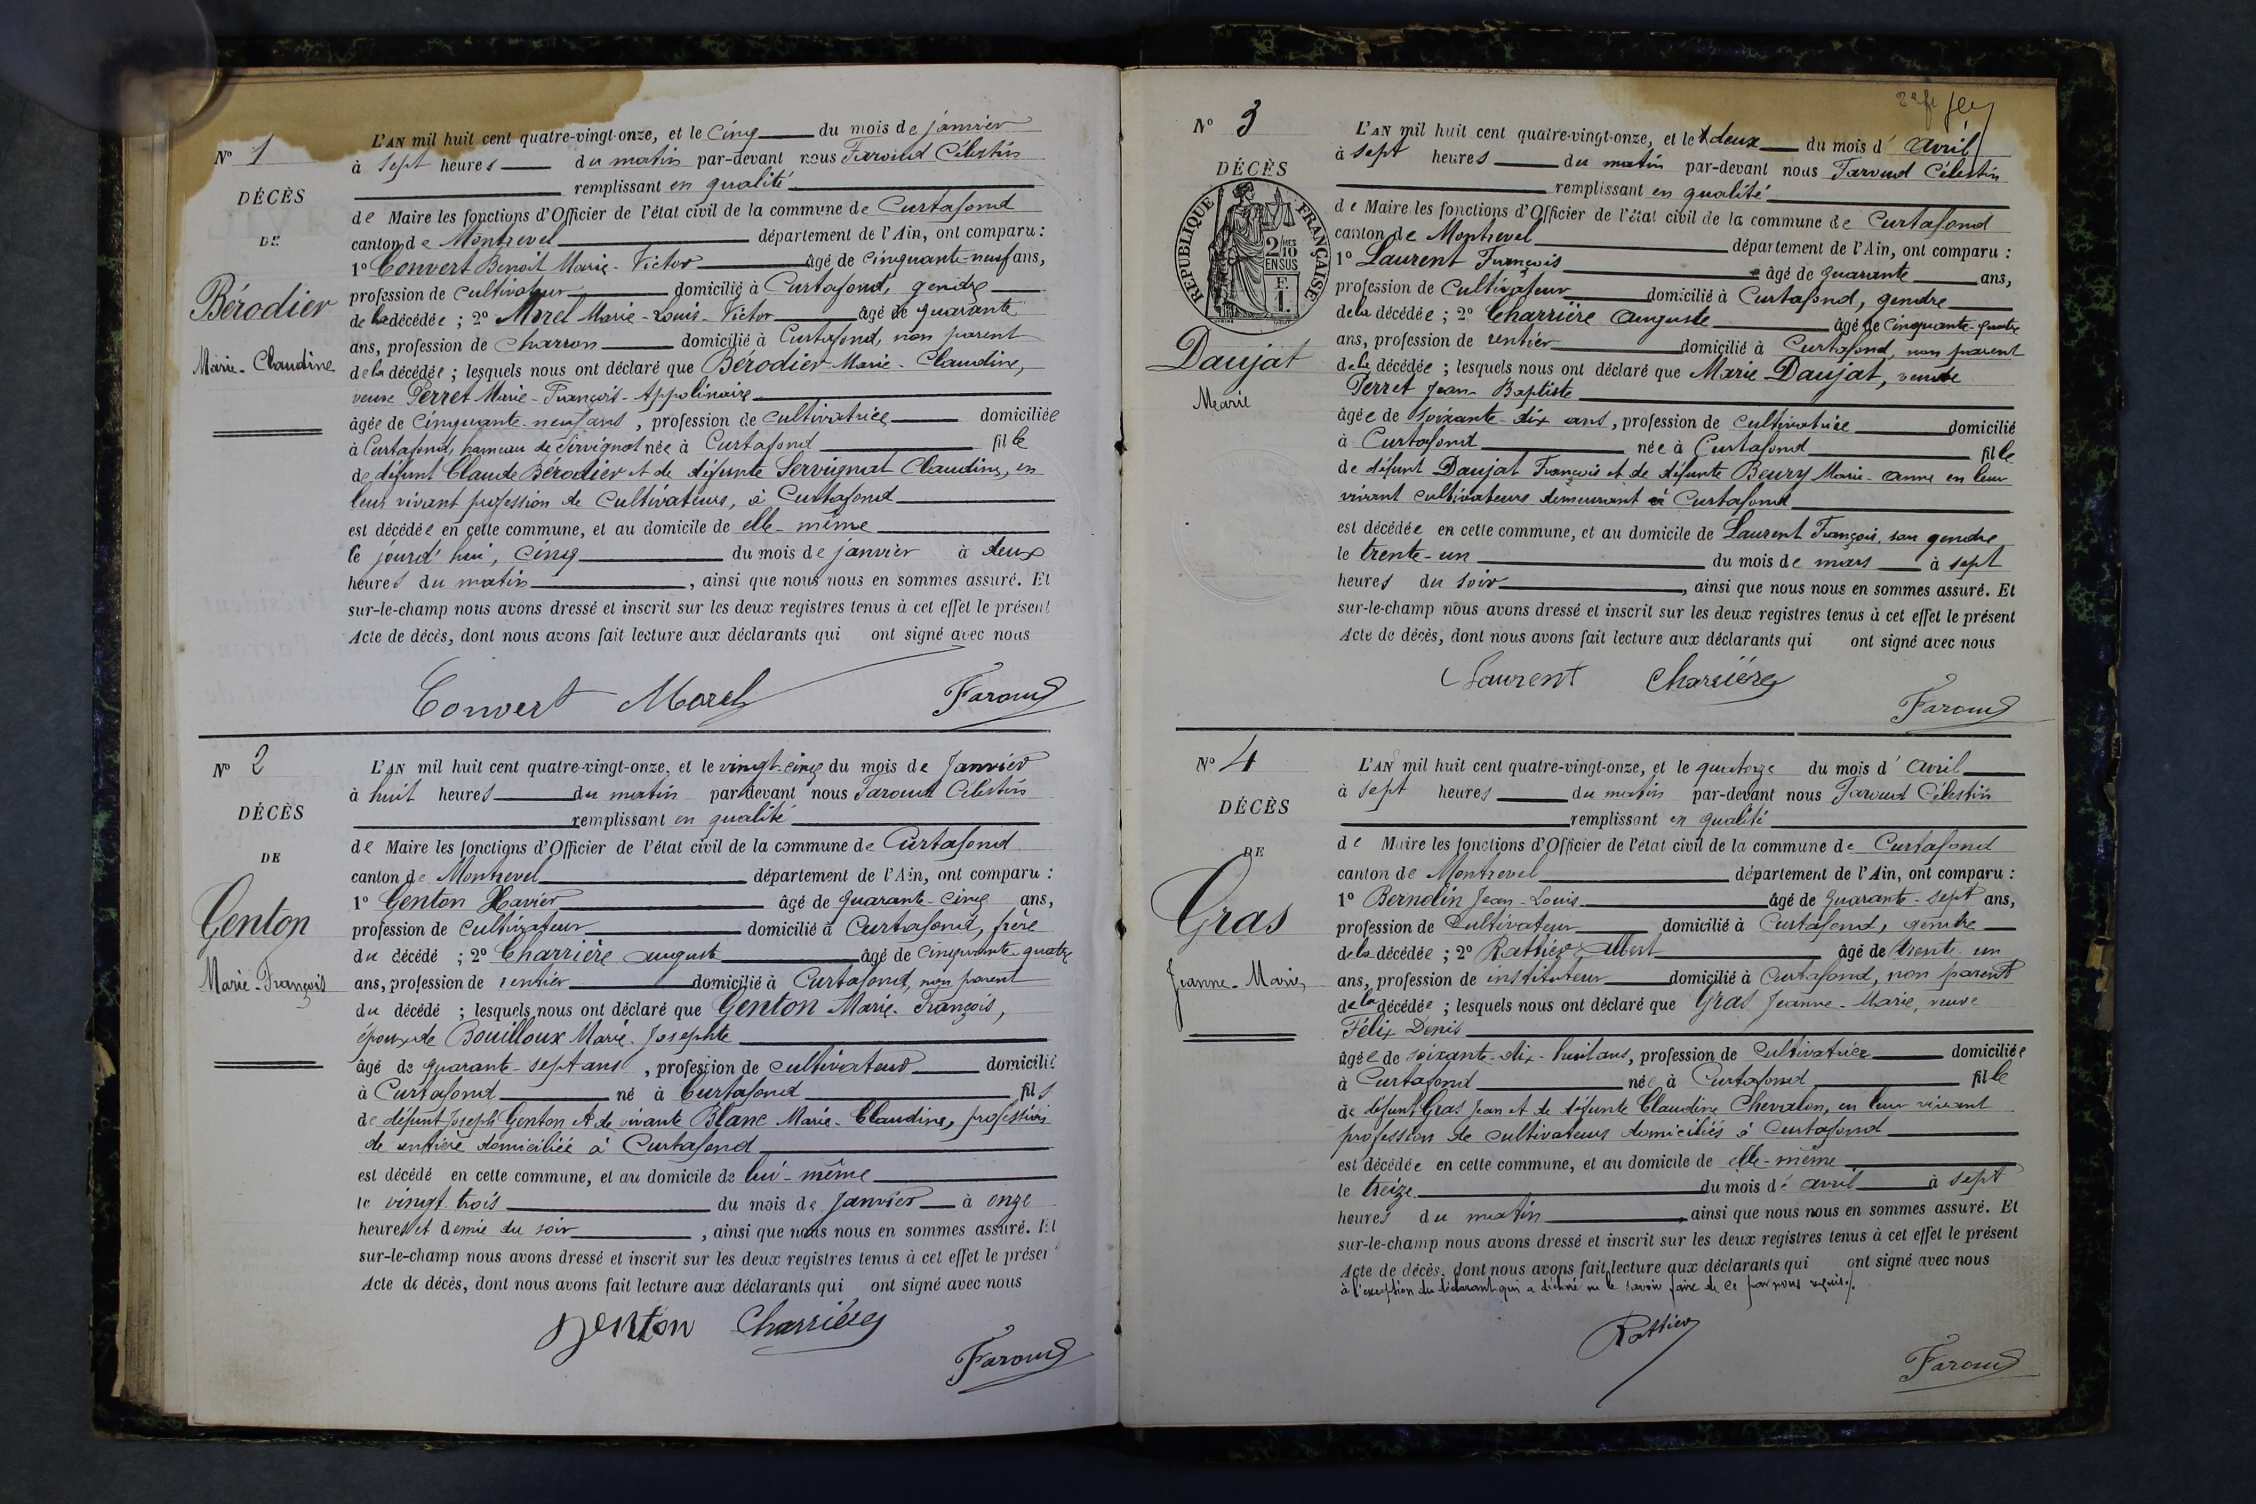 Nº 1
DÉCÈS
DE
Bérodier
Marie-Claudine
L'AN mil huit cent quatre-vingt-onze, et le cinq du mois de janvier
à sept heures du matin par-devant nous Faroud Célestin
remplissant en qualité
de Maire les fonctions d'Officier de l'état civil de la commune de Curtafond
canton de Montrevel département de l'Ain, ont comparu :
1º Convert Benoit Marie-Victor âgé de cinquante-neuf ans,
profession de cultivateur domicilié à Curtafond, gendre
de la décédée ; 2º Morel Marie-Louis-Victor âgé de quarante
ans, profession de charron domicilié à Curtafond, non parent
de la décédée ; lesquels nous ont déclaré que Bérodier Marie-Claudine,
veuve Perret Marie-François-Appolinaire
âgée de cinquante-neuf ans, profession de cultivatrice domiciliée
à Curtafond, hameau de Servignat née à Curtafond fille
de défunt Claude Bérodier et de défunte Servignat Claudine, en
leur vivant profession de cultivateurs, à Curtafond
est décédée en cette commune, et au domicile de elle-même
le jourd'hui, cinq du mois de janvier à deux
heures du matin, ainsi que nous nous en sommes assuré. Et
sur-le-champ nous avons dressé et inscrit sur les deux registres tenus à cet effet le présent
Acte de décès, dont nous avons fait lecture aux déclarants qui ont signé avec nous
Convert Morel Faroud
Nº 2
DÉCÈS
DE
Genton
Marie-François
L'AN mil huit cent quatre-vingt-onze, et le vingt-cinq du mois de Janvier
à huit heures du matin par-devant nous Faroud Célestin
remplissant en qualité
de Maire les fonctions d'Officier de l'état civil de la commune de Curtafond
canton de Montrevel département de l'Ain, ont comparu :
1º Genton Xavier âgé de quarante-cinq ans,
profession de cultivateur domicilié à Curtafond, frère
du décédé ; 2º Charrière auguste âgé de cinquante-quatre
ans, profession de rentier domicilié à Curtafond, non parent
du décédé ; lesquels nous ont déclaré que Genton Marie-François,
époux de Bouilloux Marie-Josephte
âgé de quarante-sept ans, profession de cultivateur domicilié
à Curtafond né à Curtafond fils
de défunt Joseph Genton et de vivante Blanc Marie-Claudine, profession
de rentière domiciliée à Curtafond
est décédé en cette commune, et au domicile de lui-même
le vingt trois du mois de Janvier à onze
heures et demie du soir, ainsi que nous nous en sommes assuré. Et
sur-le-champ nous avons dressé et inscrit sur les deux registres tenus à cet effet le présen
Acte de décès, dont nous avons fait lecture aux déclarants qui ont signé avec nous
Genton Charrière
Faroud
Nº 3
DÉCÈS
RÉPUBLIQUE FRANÇAISE
2/10 MES
EN SUS
F.
1.
Daujat
Marie
L'AN mil huit cent quatre-vingt-onze, et le deux du mois d'avril
à sept heures du matin par-devant nous Faroud Célestin
remplissant en qualité
de Maire les fonctions d'Officier de l'état civil de la commune de Curtafond
canton de Montrevel département de l'Ain, ont comparu :
1º Laurent François âgé de quarante ans,
profession de cultivateur domicilié à Curtafond, gendre
de la décédée ; 2º Charrière auguste âgé de cinquante-quatre
ans, profession de rentier domicilié à Curtafond, non parent
de la décédée ; lesquels nous ont déclaré que Marie Daujat, veuve
Perret Jean-Baptiste
âgée de soixante-dix ans, profession de cultivatrice domicilié
à Curtafond née à Curtafond fille
de défunt Daujat François et de défunte Beury Marie-anne en leur
vivant cultivateurs demeurant à Curtafond
est décédée en cette commune, et au domicile de Laurent François, son gendre
le trente-un du mois de mars à sept
heures du soir, ainsi que nous nous en sommes assuré. Et
sur-le-champ nous avons dressé et inscrit sur les deux registres tenus à cet effet le présent
Acte de décès, dont nous avons fait lecture aux déclarants qui ont signé avec nous
Laurent Charrière
Faroud
Nº 4
DÉCÈS
DE
Gras
Jeanne-Marie
L'AN mil huit cent quatre-vingt-onze, et le quatorze du mois d'avril
à sept heures du matin par-devant nous Faroud Célestin
remplissant en qualité
de Maire les fonctions d'Officier de l'état civil de la commune de Curtafond
canton de Montrevel département de l'Ain, ont comparu :
1º Berndin Jean-Louis âgé de quarante-sept ans,
profession de cultivateur domicilié à Curtafond, gendre
de la décédée ; 2º Rattier Albert âgé de trente-un
ans, profession de instituteur domicilié à Curtafond, non parent
de la décédée ; lesquels nous ont déclaré que Gras Jeanne-Marie, veuve
Félix Denis
âgée de soixante-dix-huit ans, profession de cultivatrice domiciliée
à Curtafond née à Curtafond fille
de défunt Gras Jean et de défunte Claudine Chevalon, en leur vivant
profession de cultivateurs domiciliés à Curtafond
est décédée en cette commune, et au domicile de elle-même
le treize du mois d'avril à sept
heures du matin, ainsi que nous nous en sommes assuré. Et
sur-le-champ nous avons dressé et inscrit sur les deux registres tenus à cet effet le présent
Acte de décès, dont nous avons fait lecture aux déclarants qui ont signé avec nous
à l'exception du déclarant qui a déclaré ne le savoir faire de ce par nous requis.
Rattier
Faroud